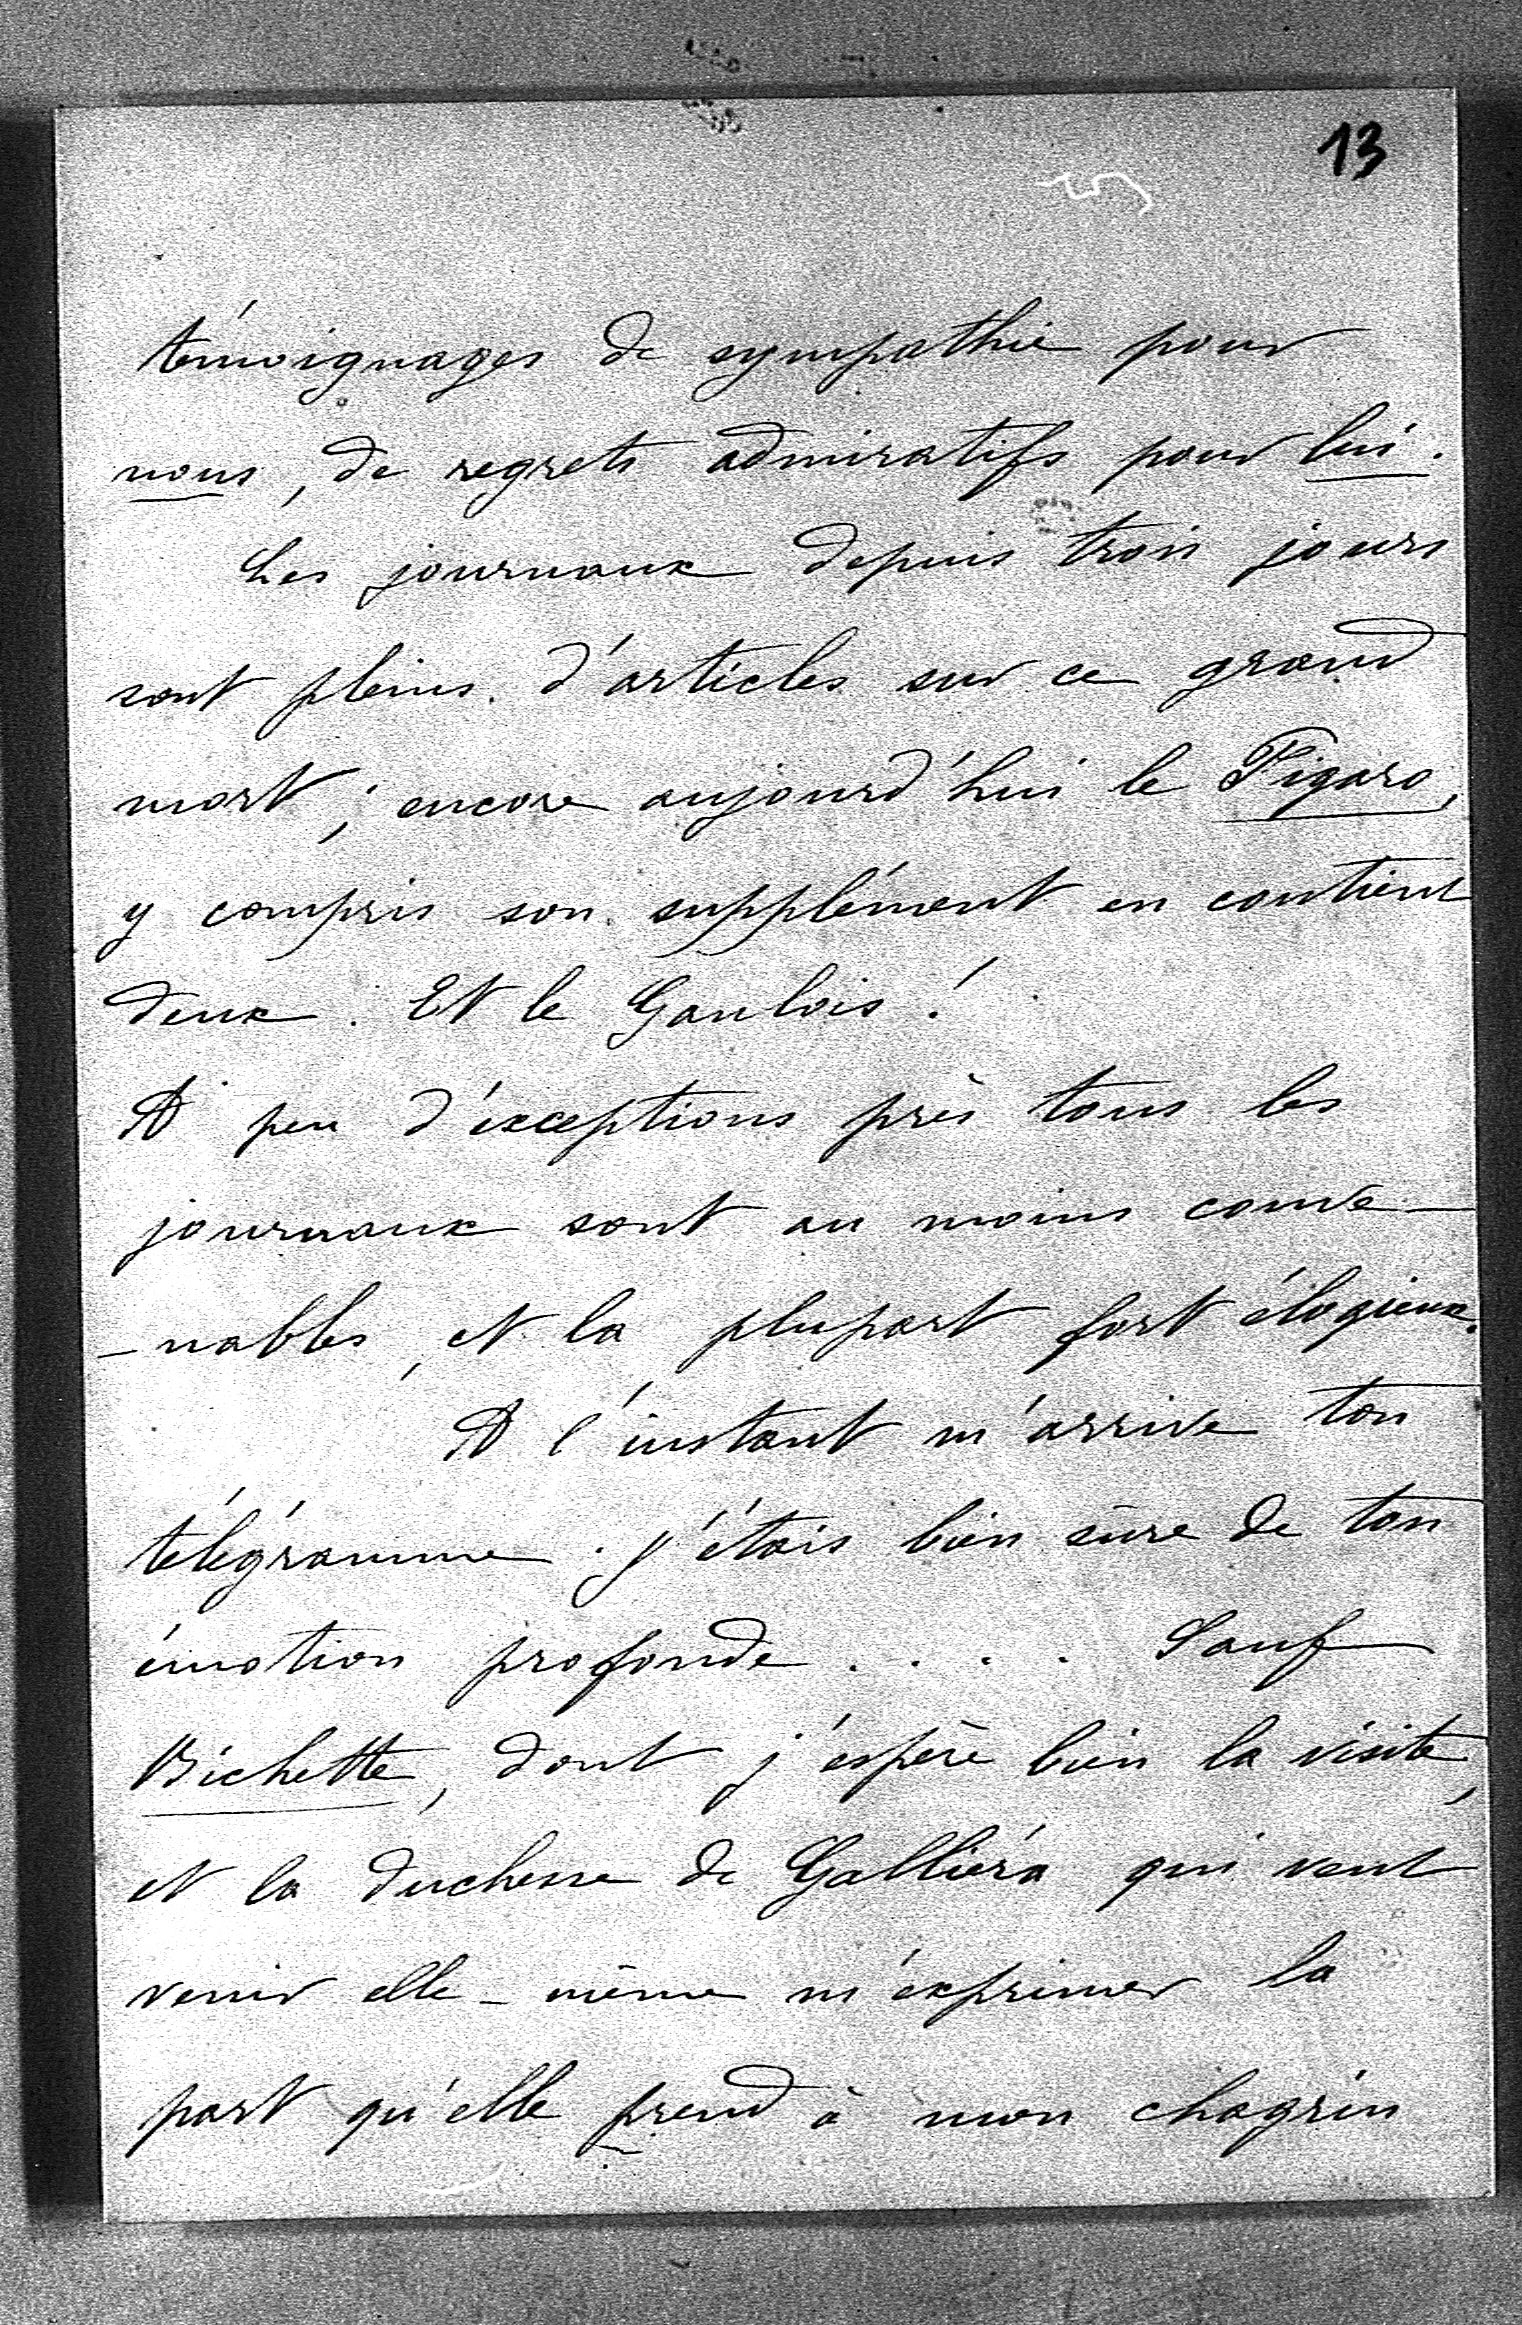 13
témoignages de sympathie pour
nous, de regrets admiratifs pour lui.
Les journaux depuis trois jours
sont pleins d'articles sur ce grand
mort ; encore aujourd'hui le Figaro,
y compris son supplément en contient
deux. Et le Gaulois !
A peu d'exceptions près tous les
journaux sont au moins conve-
-nables, et la plupart fort élogieux.
A l'instant m'arrive ton
télégramme. J'étais bien sûre de ton
émotion profonde .... Sauf
Bichette, dont j'espère bien la visite,
et la duchesse de Galliéra qui veut
venir elle-même m'exprimer la
part qu'elle prend à mon chagrin